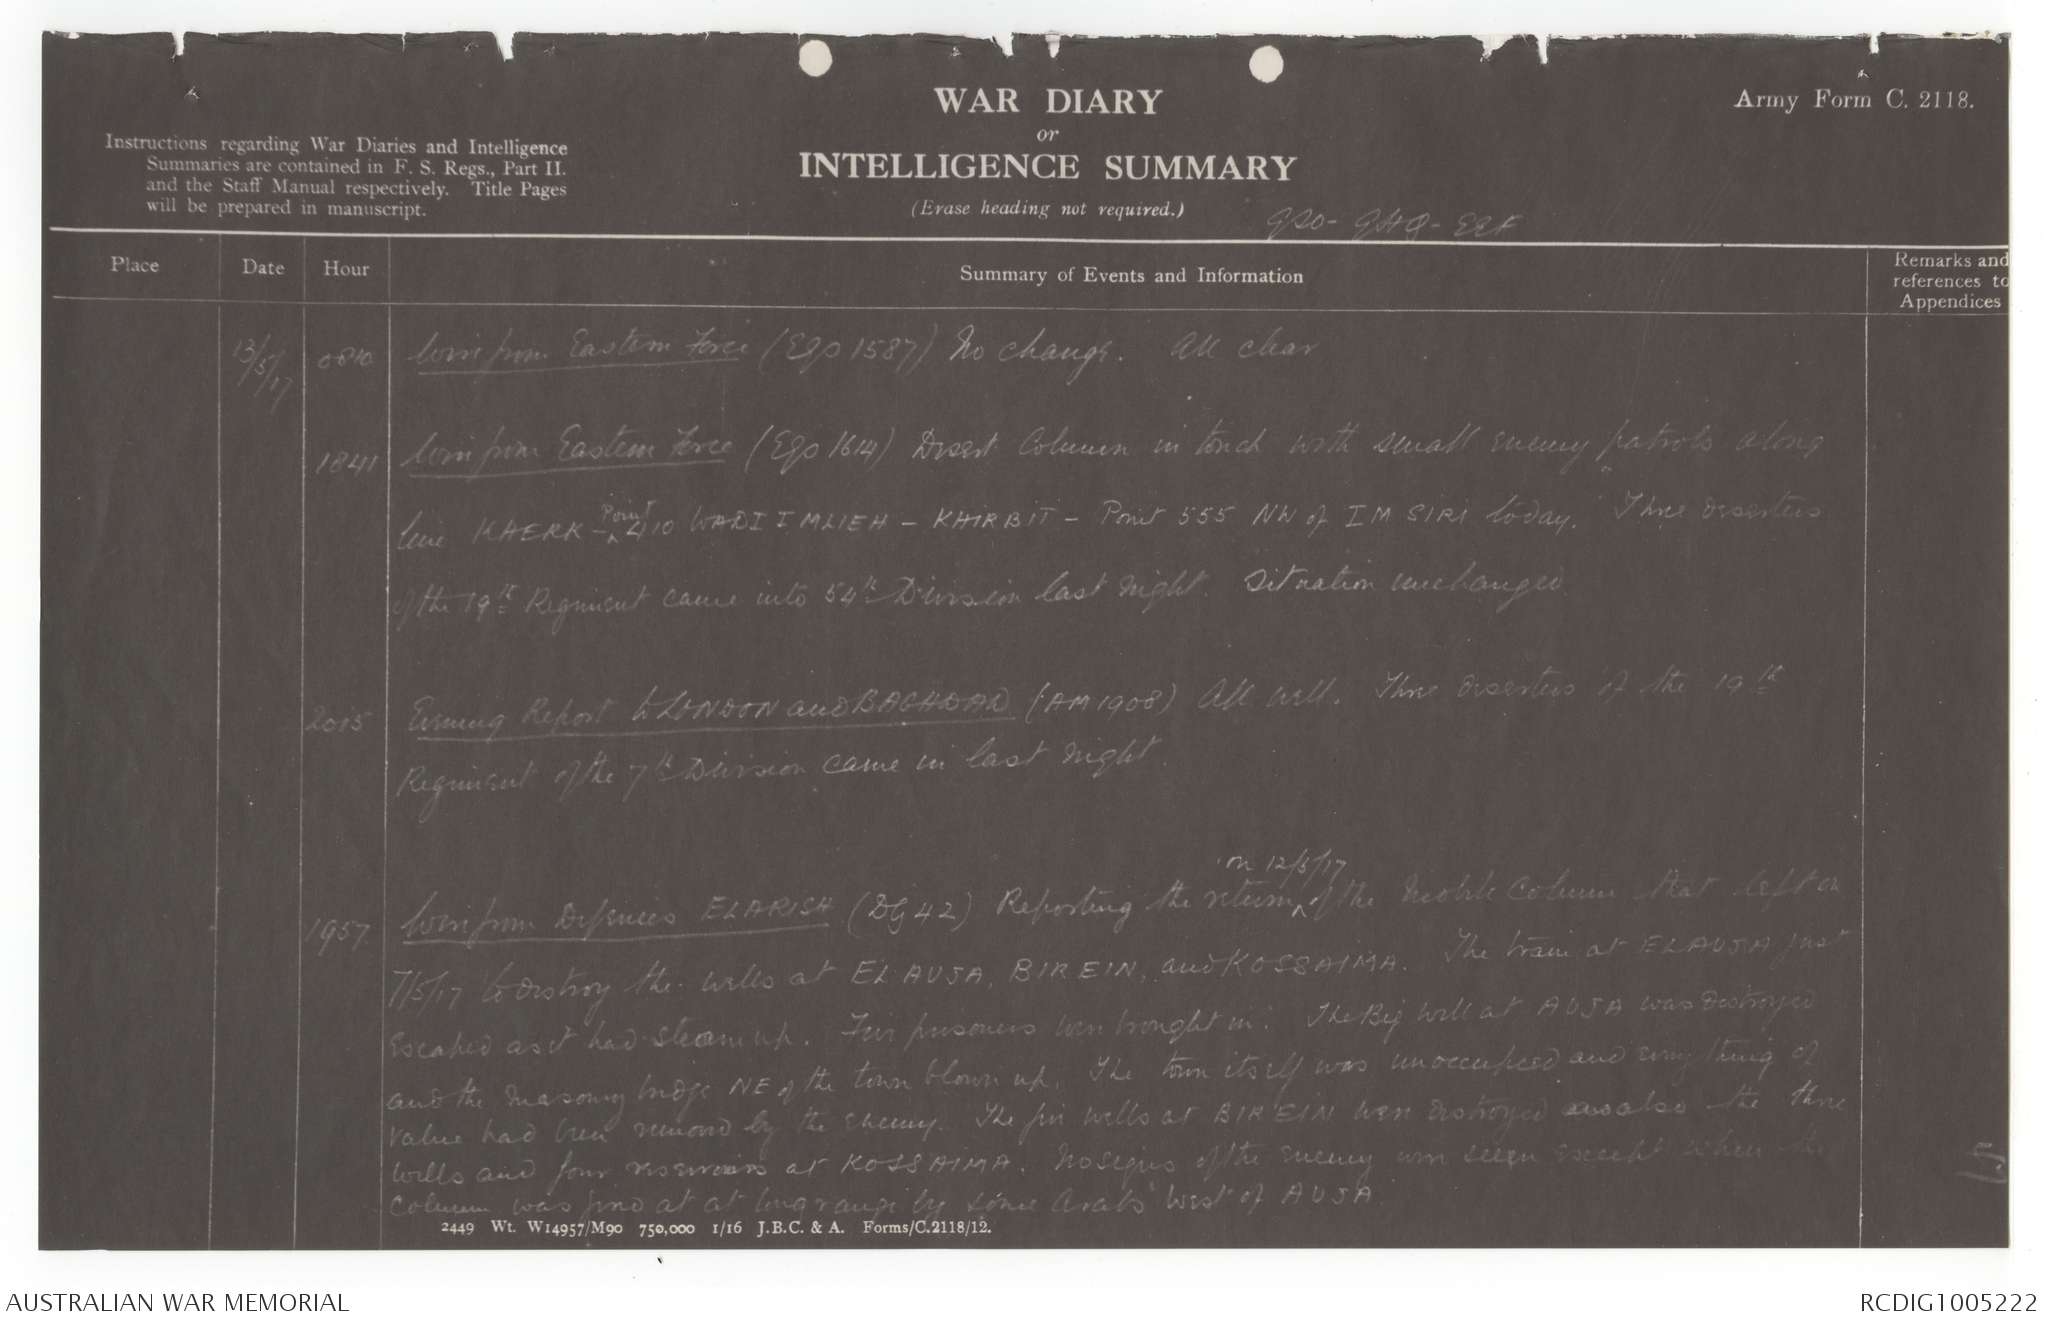 WAR DIARY
or
INTELLIGENCE SUMMARY
(Erase heading not required.)
Army Form C. 2118.
Instructions regarding War Diaries and Intelligence
Summaries are contained in F. S. Regs., Part II.
and the Staff Manual respectively. Title Pages
will be prepared in manuscript.
GSO - GHQ - EEF
Place Date Hour Summary of Events and Information Remarks and references to Appendices
13/5/17 0810 Wire from Eastern Force (EGO 1587) No change. All clear
1841 Wire from Eastern Force (EGO 1614) Desert Column in touch with small enemy patrols along
line KHERK - Point 410 WADI IMLIEH - KHIRBIT - Point 555 NW of IM SIRI today. Three deserters
of the 19th Regiment came into 54th Division last night. Situation unchanged.
2015 Evening Report to LONDON and BAGHDAD (AM 1908) All well. Three deserters of the 19th
Regiment of the 7th Division came in last night.
1957 Wire from Defences EL ARISH (DG 42) Reporting the return on 12/5/17 of the Mobile Column that left on
7/5/17 to destroy the wells at EL AUJA, BIREIN, and KOSSAIMA. The train at EL AUJA just
escaped as it had steam up. Five prisoners were brought in. The Big Well at AUJA was destroyed
and the masonry bridge NE of the town blown up. The town itself was unoccupied and everything of
value had been removed by the enemy. The five wells at BIREIN were destroyed as also the three
wells and four reservoirs at KOSSAIMA. No signs of the enemy were seen except when the
Column was fired at at long range by some Arabs West of AUJA.
2449 Wt. W14957/M90 750,000 1/16 J.B.C. & A. Forms/C.2118/12.
AUSTRALIAN WAR MEMORIAL
RCDIG1005222